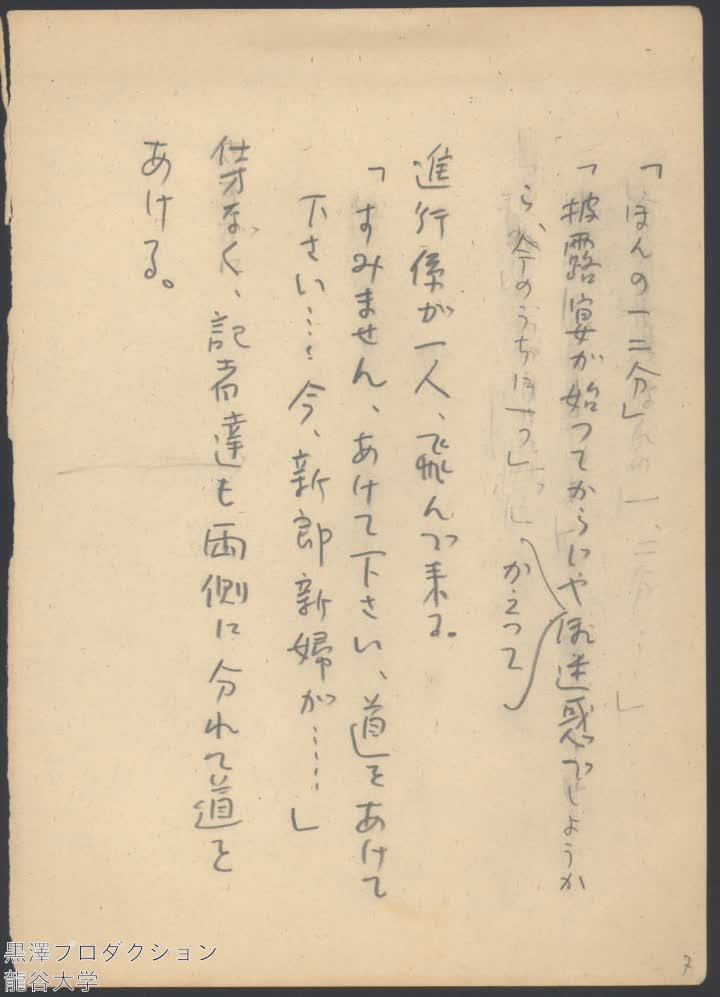 「ほんの一二分」
「披露宴が始つてからじや御迷惑でしょうか
ら、今のうちに一つ」
かえつて
進行係が一人、飛んで来る。
「すみません、あけて下さい、道をあけて
下さい……今、新郎新婦が……」
仕方なく、記者達も両側に分れて道を
あける。
7
黒澤プロダクション
龍谷大学